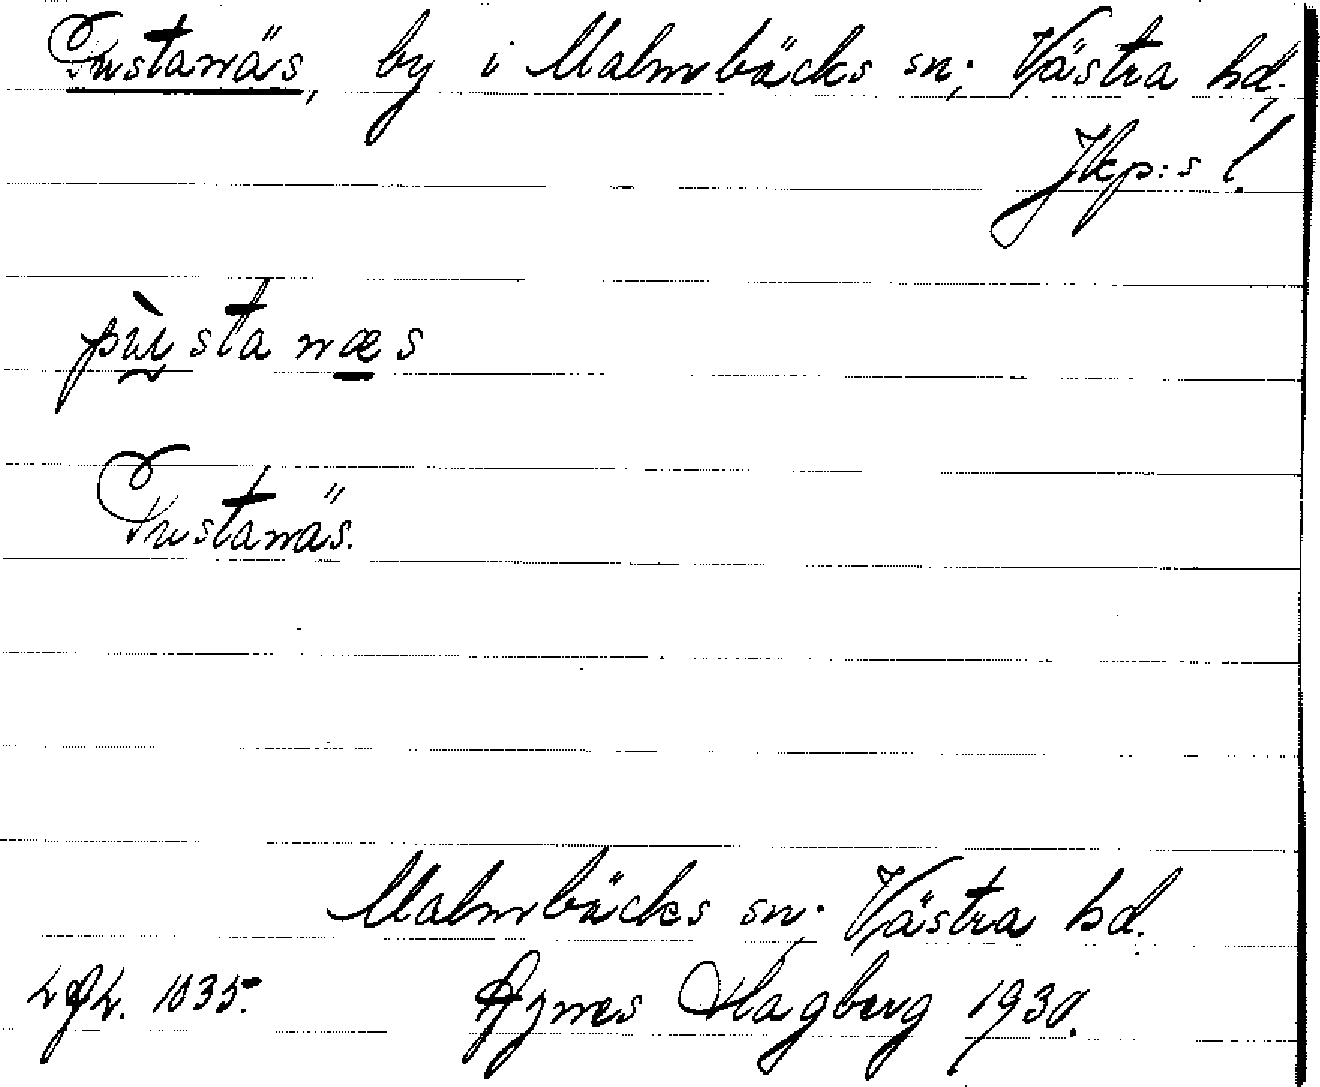 Pustanäs, by i Malmbäcks sn; Västra hd;
Jkp:s l.
pùstanæs
Pustanäs.
Malmbäcks sn; Västra hd.
1035. Agnes Hagberg 1930.